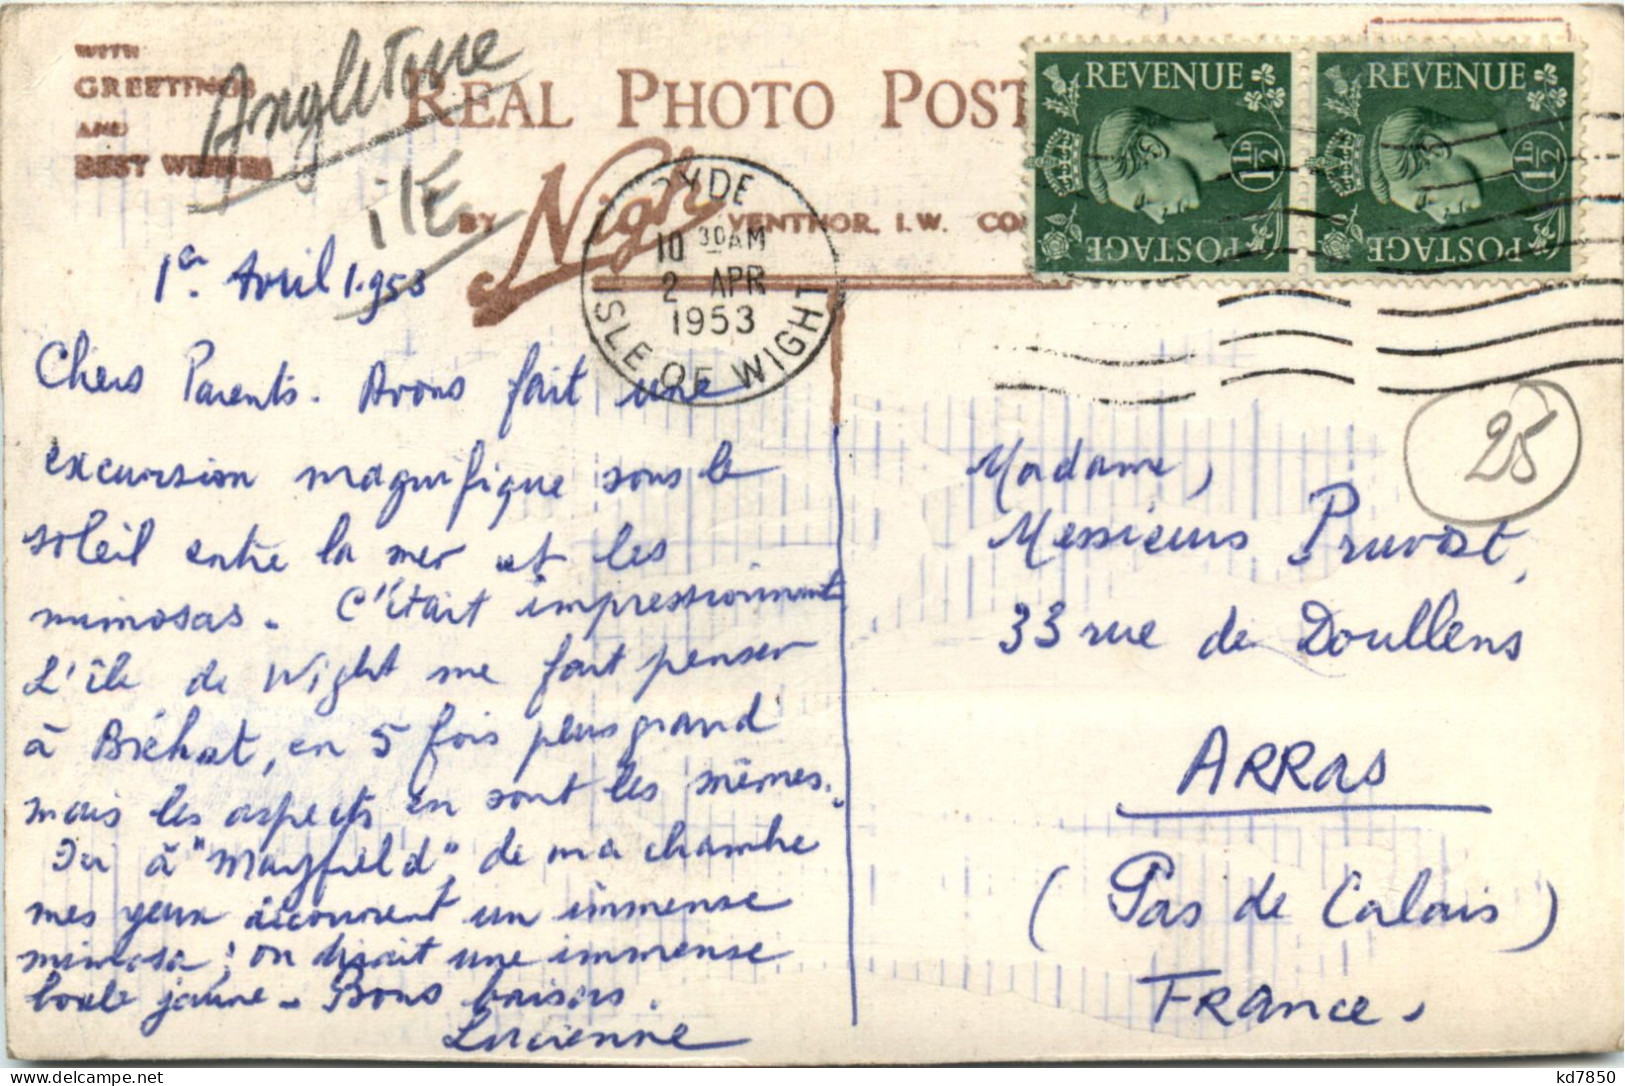 WITH
GREETINGS
AND
BEST WISHES
Angleterre
îlE
REAL PHOTO POST
BY Nigh VENTNOR, I.W. CO
RYDE
10 30 AM
2 APR
1953
ISLE OF WIGHT
REVENUE
1½D
POSTAGE
REVENUE
1½D
POSTAGE
25
1er Avril 1.953
Chers Parents. Avons fait une
excursion magnifique sous le
soleil entre la mer et les
mimosas. C'était impressionnant
L'île de Wight me fait penser
à Bréhat, en 5 fois plus grand
mais les aspects en sont les mêmes.
Ici à "Mayfield", de ma chambre
mes yeux découvrent un immense
mimosa ; on dirait une immense
boule jaune - Bons baisers.
Lucienne
Madame,
Messieurs Pruvost,
33 rue de Doullens
ARRas
(Pas de Calais)
FRance.
kd7850